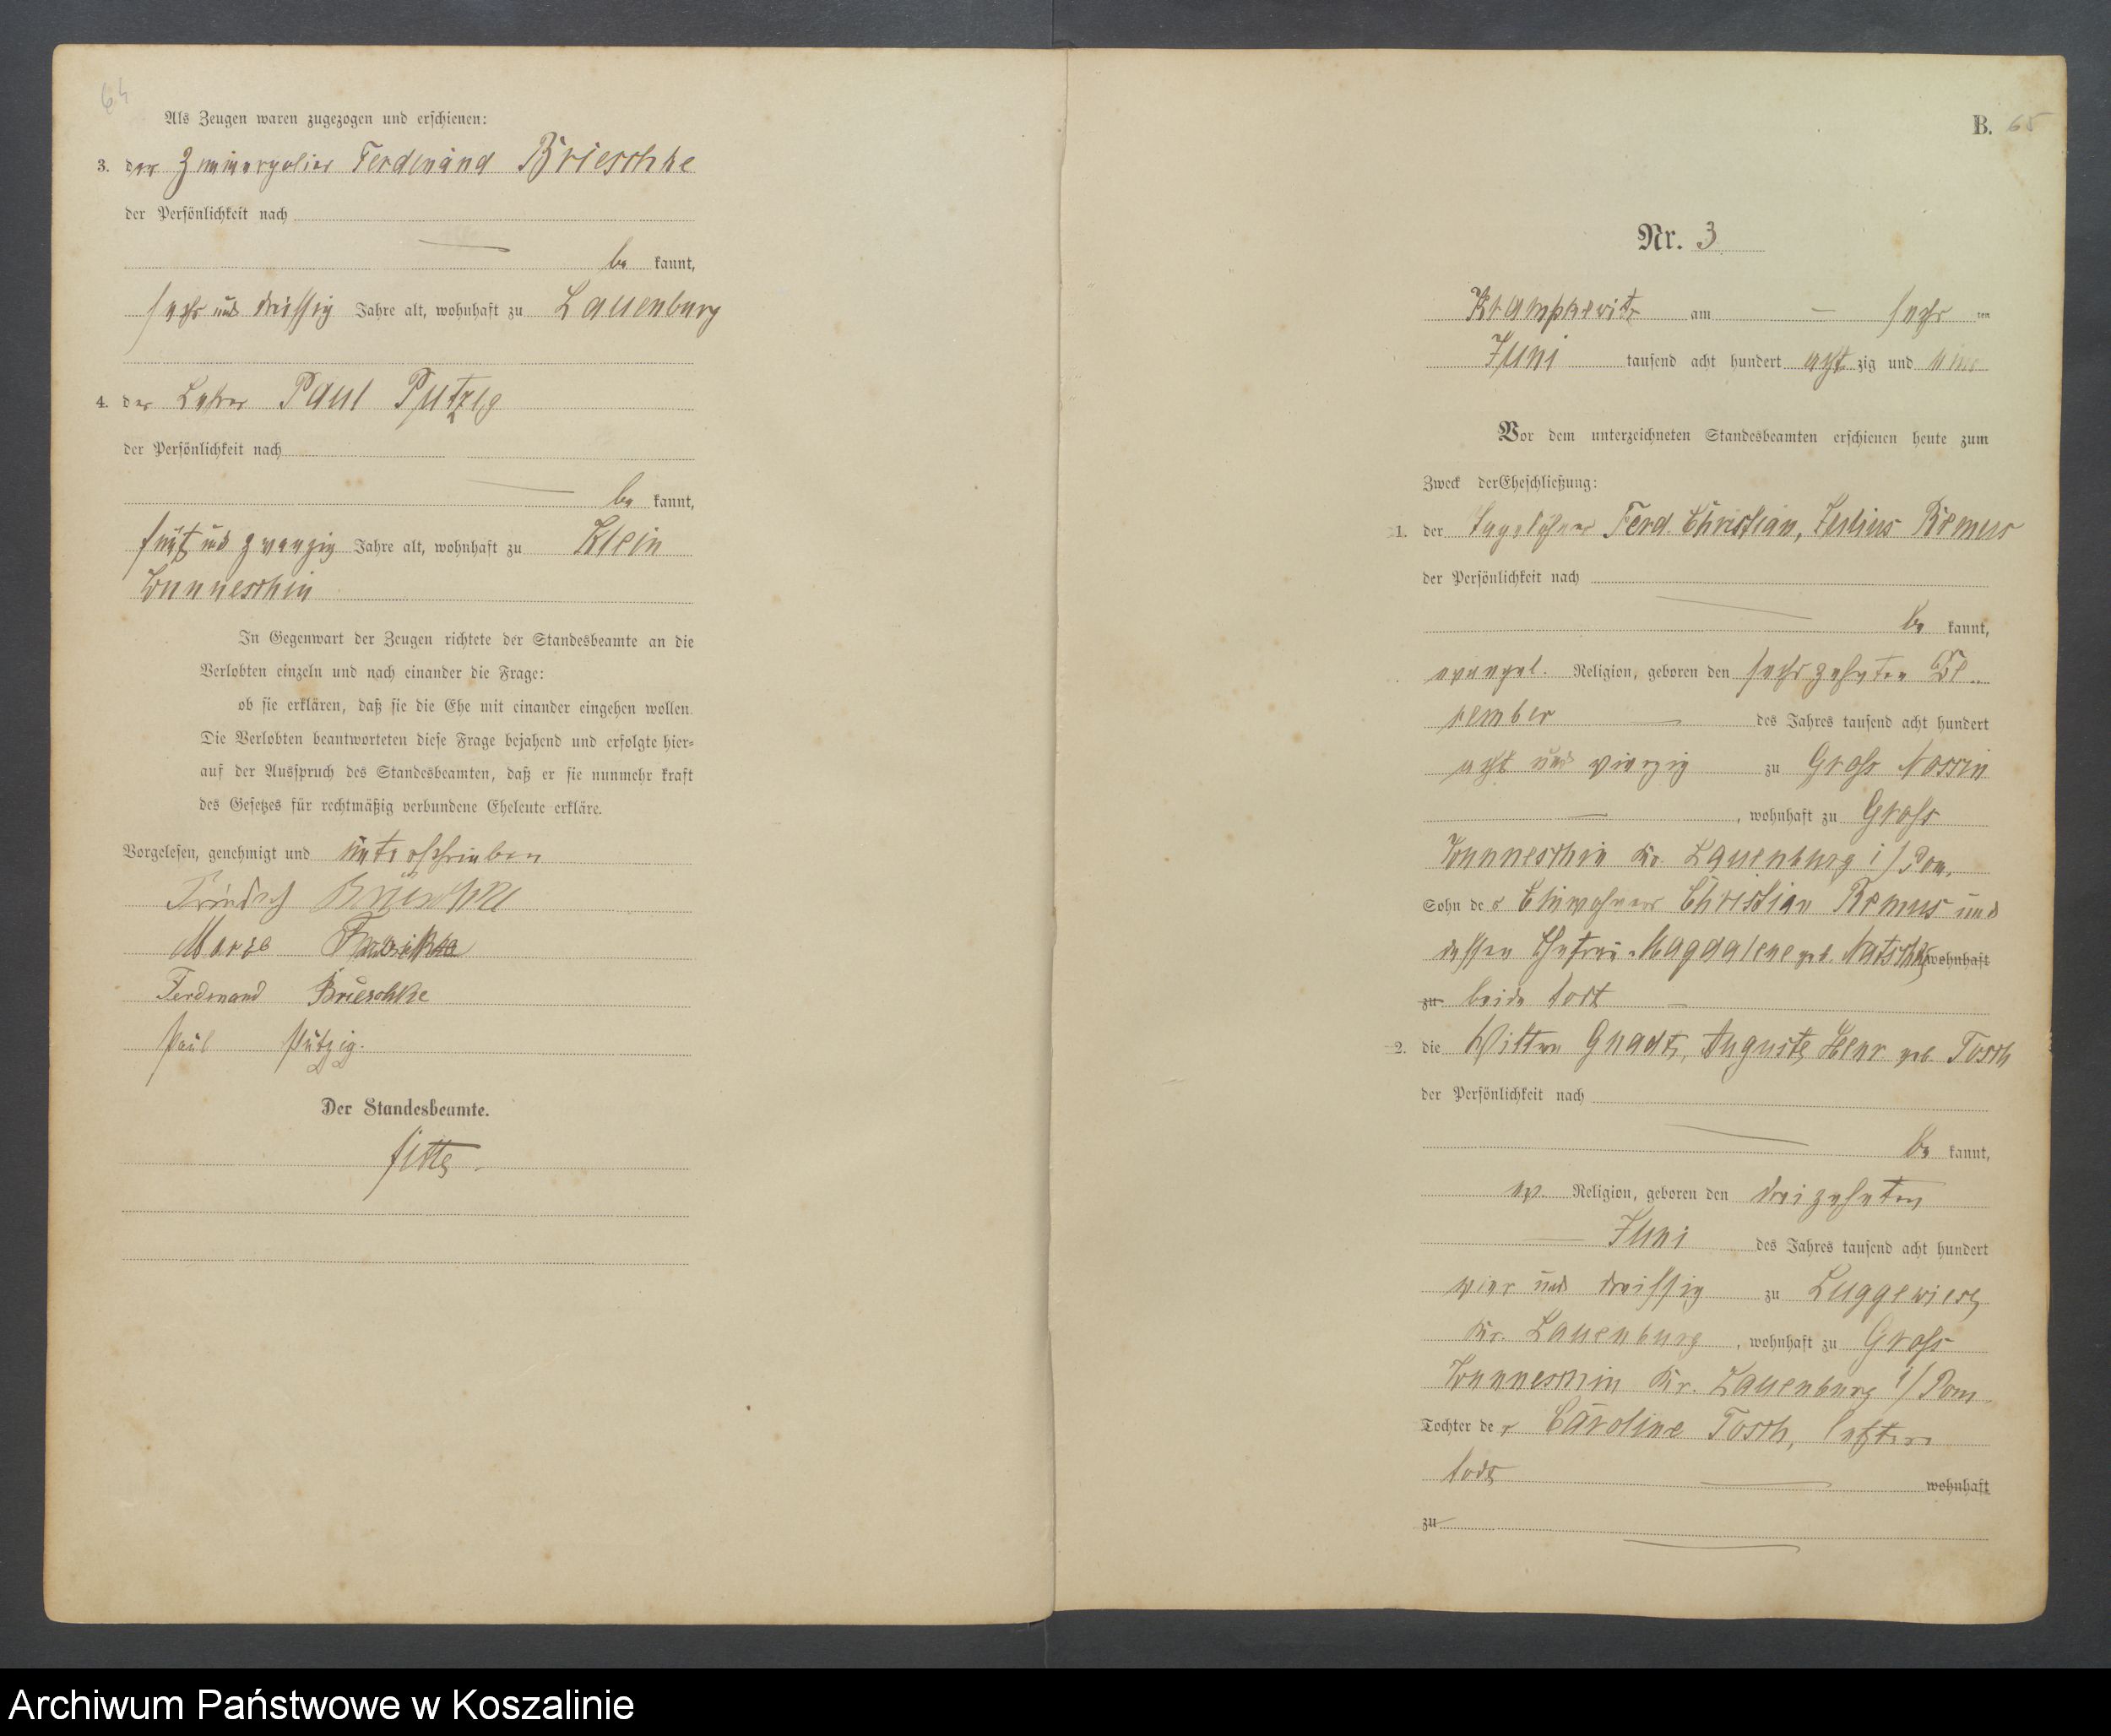 64
Als Zeugen waren zugezogen und erschienen:
3. der Zimmerpolier Ferdinand Brieschke
der Persönlichkeit nach
be kannt,
sechs und dreissig Jahre alt, wohnhaft zu Lauenburg
4. der Lehrer Paul Putzig
der Persönlichkeit nach
be kannt,
fünf und zwanzig Jahre alt, wohnhaft zu Klein
Wunneschin
In Gegenwart der Zeugen richtete der Standesbeamte an die
Verlobten einzeln und nach einander die Frage:
ob sie erklären, daß sie die Ehe mit einander eingehen wollen.
Die Verlobten beantworteten diese Frage bejahend und erfolgte hier=
auf der Ausspruch des Standesbeamten, daß er sie nunmehr kraft
des Gesetzes für rechtmäßig verbundene Eheleute erkläre.
Vorgelesen, genehmigt und unterschrieben
Brieschke
Ferdinand Brieschke
Paul Putzig.
Der Standesbeamte.
B. 65
Nr. 3
Krampkewitz am sechs ten
Juni tausend acht hundert acht zig und
Vor dem unterzeichneten Standesbeamten erschienen heute zum
Zweck der Eheschließung:
1. der Tagelöhner Ferd. Christian, Remus
der Persönlichkeit nach
be kannt,
evangel. Religion, geboren den sechszehnten De
cember des Jahres tausend acht hundert
acht und vierzig zu Groß Nossin
, wohnhaft zu Groß
Wunneschin Kr. Lauenburg i/Pom.
Sohn des Einwohners Christian Remus und
dessen Ehefrau Magdalene geb. wohnhaft
zu beide todt
2. die Wittwe Gnadt, Auguste Henr geb. Tosch
der Persönlichkeit nach
be kannt,
ev. Religion, geboren den dreizehnten
Juni des Jahres tausend acht hundert
vier und dreissig zu Luggewiese
Kr. Lauenburg, wohnhaft zu Groß
Wunneschin Kr. Lauenburg i/Pom.
Tochter der Caroline Tosch, letztere
todt wohnhaft
zu
Archiwum Państwowe w Koszalinie